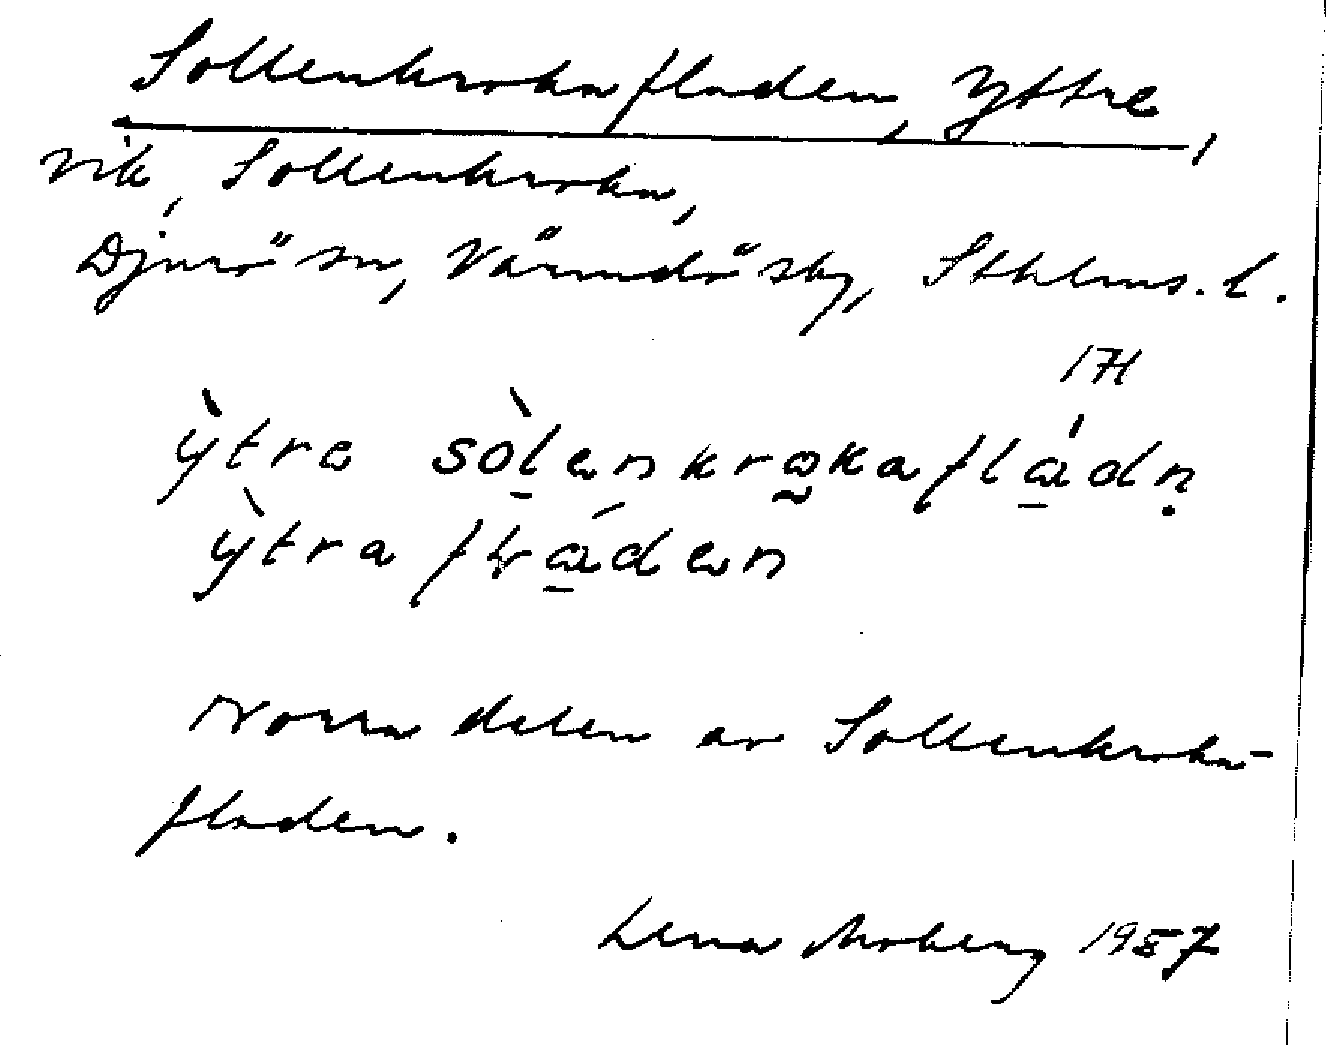 Sollenkrokafladen, Yttre,
vik, Sollenkroka,
Djurö sn, Värmdö skg, Sthlms. l.
17H
ỳtre sòlenkrokafládṇ
ỳtra fláden
Norra delen av Sollenkroka-
fladen.
Lena Moberg 1987